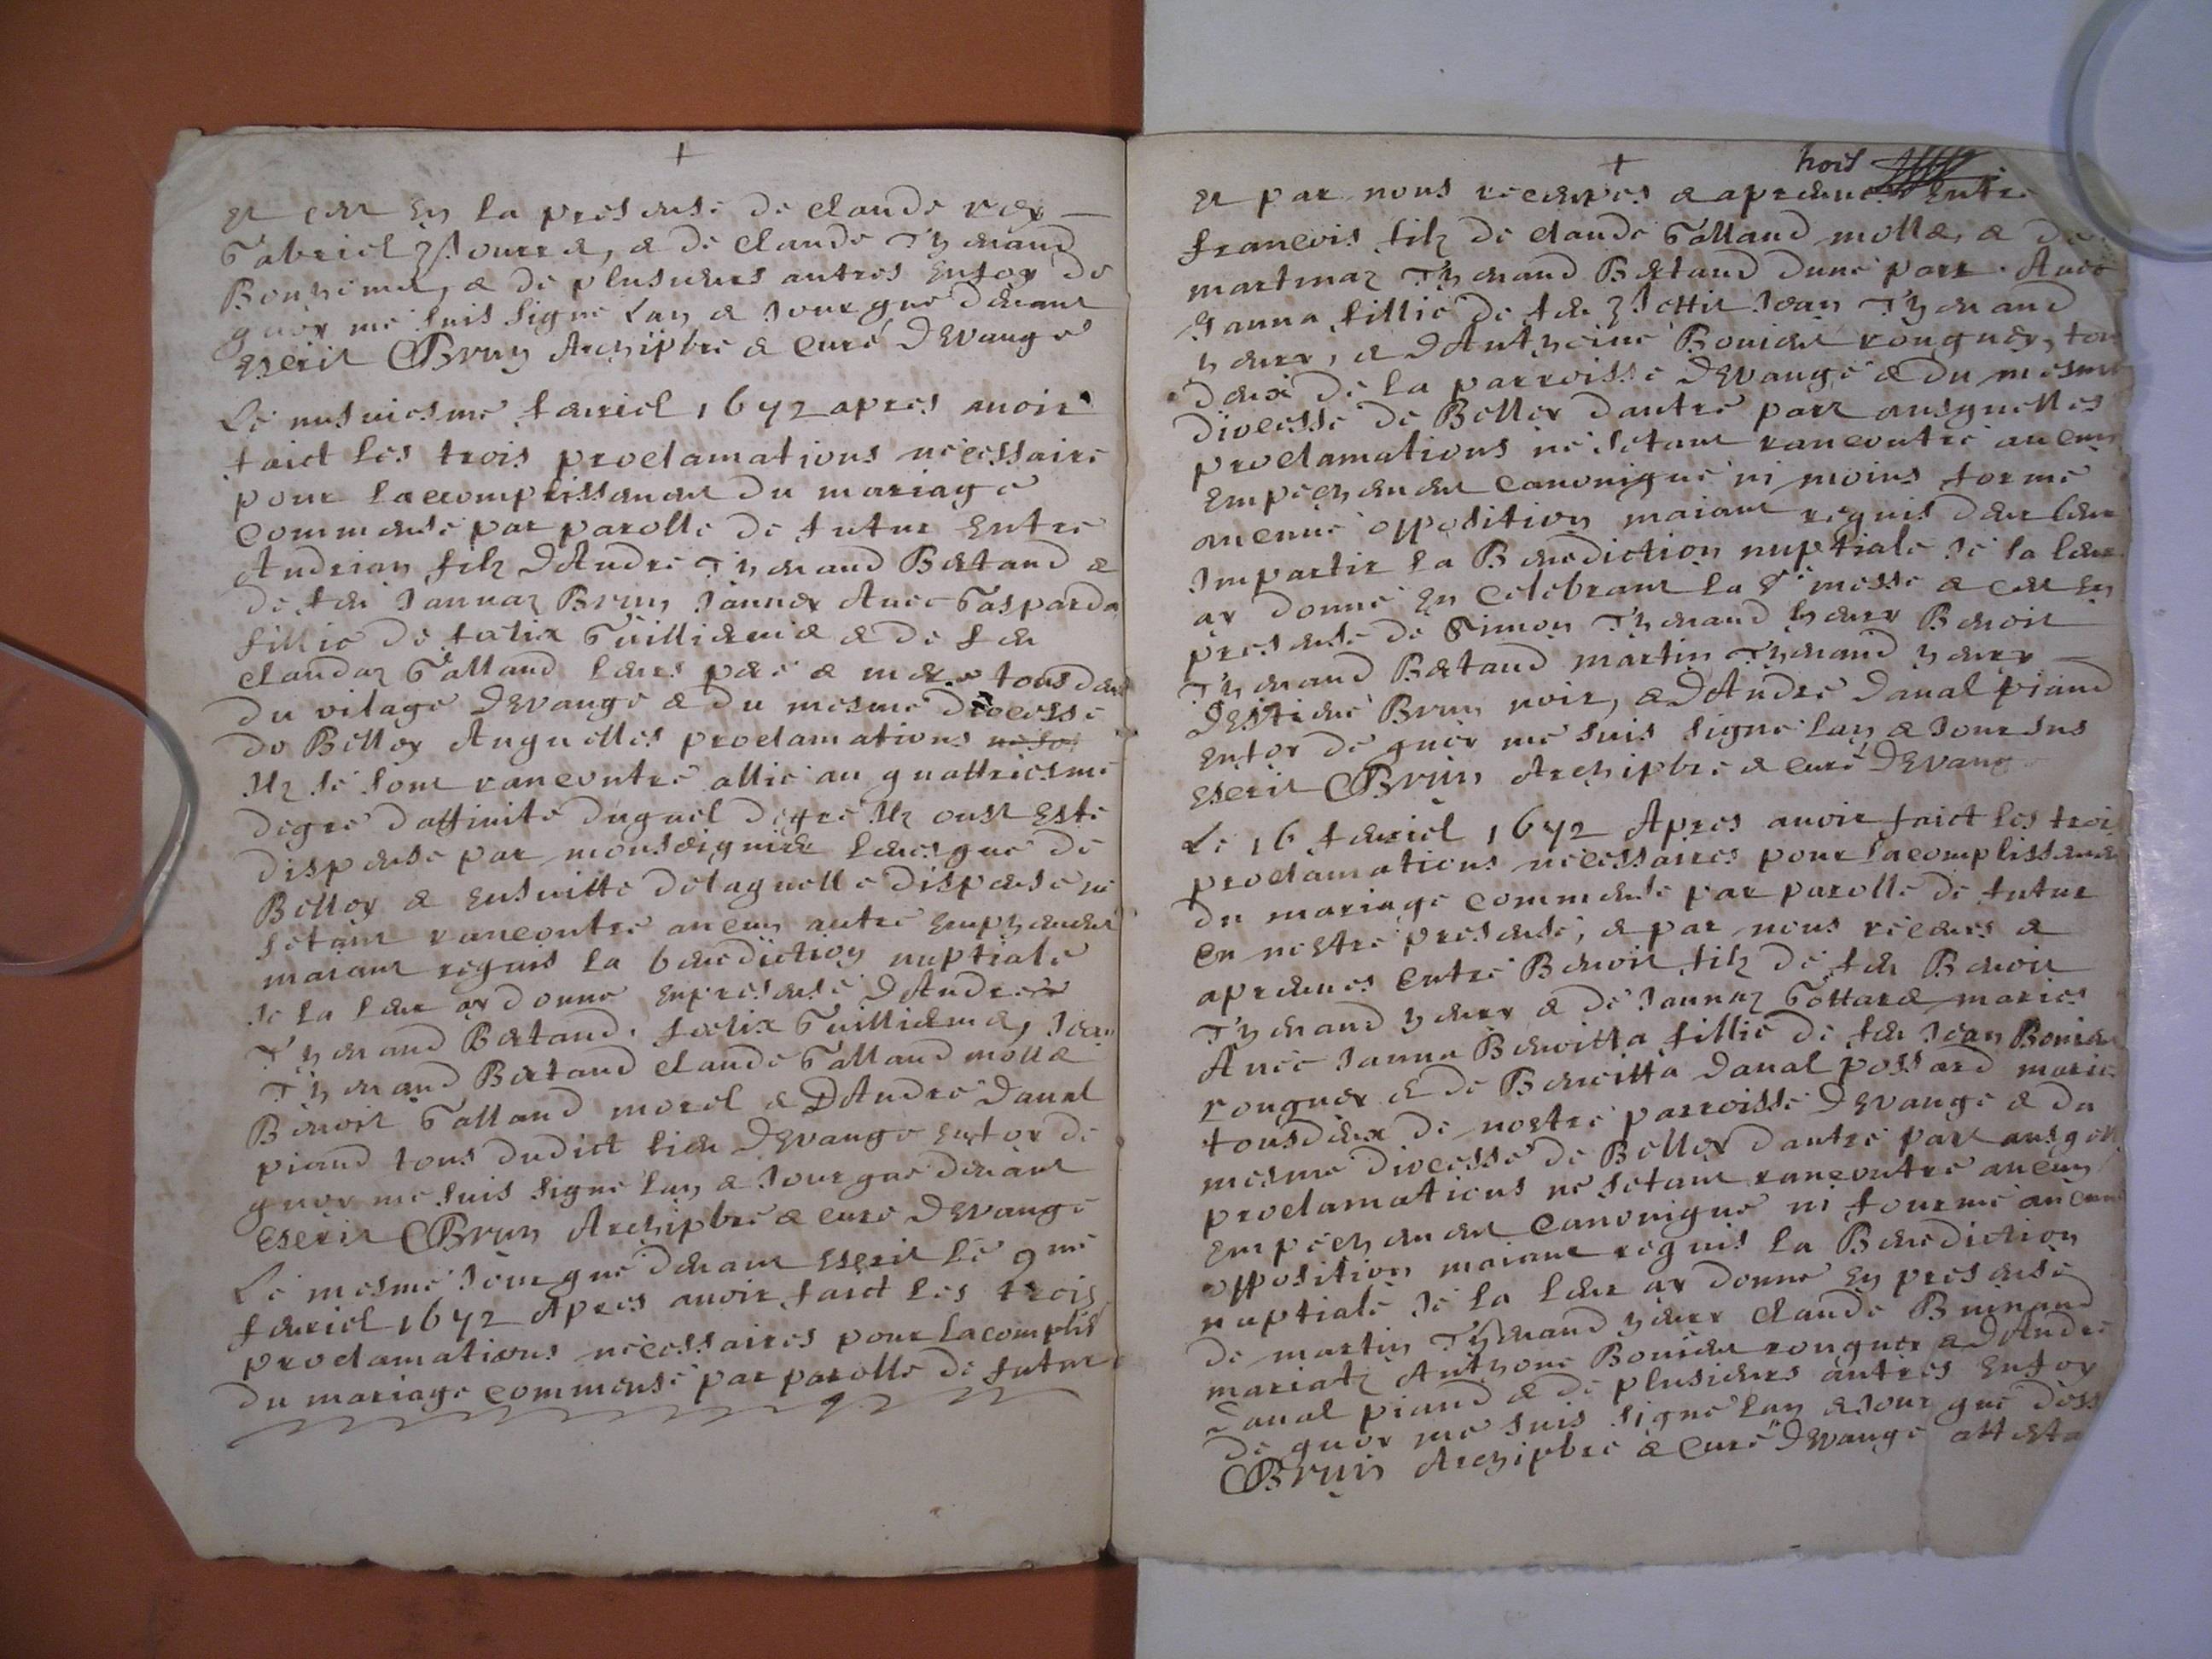 +
et cen en la presence de claude rey
Gabriel Jourra, & de claude Thenand
& de plusieurs autres en foy de
quoy me suis signe lan & jour que devant
escrit CBrun Archipbre & curé Devange
Le nufviesme febvriel 1672 apres avoir
faict les trois proclamations necessaire
pour lacomplissement du mariage
commensé par parolle de futur entre
Andrian filz dAndre Thenand Betand &
de feu Jannaz Brun Janner Avec Gasparda
fillie de foelix Guilliermé & de feu
claudaz Galland leurs pere & mere tousdeux
du vilage Devange & du mesme diocesse
de Belley Auquelles proclamations ne so
Ilz se sont rancontré allié au quattriesme
degre daffinite duquel degre Ilz onst esté
dispensé par monseigneur levesque de
Belley & ensuitte delaquelle dispense ne
setant rancontre aucun autre emphement
maiant requis la benediction nuptiale
Je la leur ay donne en presence dAndre
Thenand Betand. foelix Guilliermé, Jean
Thenand Betand claude Galland molla
Benoit Galland morel & DAndre Danal
piand tous dudict lieu Devange en foy de
quoy me suis signe lan & jour que devant
escrit CBrun Archipbre & curé Devange
Le mesme jour que devant escrit le 9me
febvriel 1672 Apres avoir faict les trois
proclamations necessaires pour lacomplis
du mariage commensé par parolle de futur
+
hoes
et par nous receupes & apreuves Entre
francois filz de claude Galland molla, & de
martinaz Thenand Betand dune part. Avec
Janna fillie de feu Jean Thenand
heury, & dAnthoine Bouvier rouguey, tous
deux de la parroisse Devange & du mesme
diocesse de Belley dautre part ausquelles
proclamations ne setant rancontre aucun
empechement canonique ni moins formé
aucune opposition maiant requis de leur
Impartir la Benediction nuptiale je la leur
ay donné en celebrant la Ste messe & cen en
presence de Simon Thenand heury Benoit
Thenand Betand martin Thenand heury
dEstiene Brun noir, & dAndré Danal piand
en foy de quoy me suis signe lan & jour sus
escrit CBrun Archipbre & curé Devange
Le 16 febvriel 1672 Apres avoir faict les trois
proclamations necessaires pour lacomplissement
du mariage commensé par parolle de futur
en nostre presence, & par nous receues &
apreuves entre Benoit filz de feu Benoit
Thenand heury & de Jannaz Gottard mariés
Avec Janna Benoitta fillie de feu Jean Bouvier
rouguey & de Benoitta Danal possard mariés
tousdeux de nostre parroisse Devange & du
mesme diocesse de Belley dautre part ausquell
proclamations ne setant rancontre aucun
empechement canonique ni fourmé aucune
opposition maiant requis la Benediction
nuptiale je la leur ay donne en presence
de martin Thenand heury claude Buinand
mariatz Anthone Bouvier rouguey & dAndre
Danal piand & de plusieurs autres en foy
de quoy me suis signe lan & jour que dess
CBrun Archipbre & curé Devange attesta